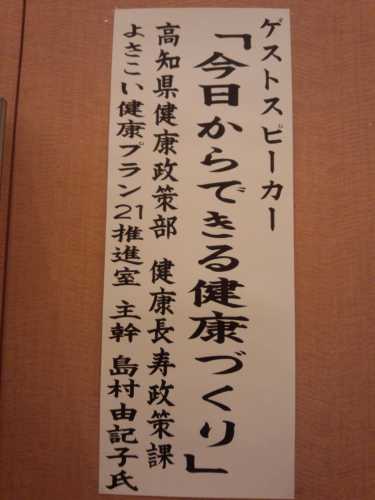 ゲストスピーカー
「今日からできる健康づくり」
高知県健康政策部 健康長寿政策課
よさこい健康プラン21推進室 主幹 島村由記子氏